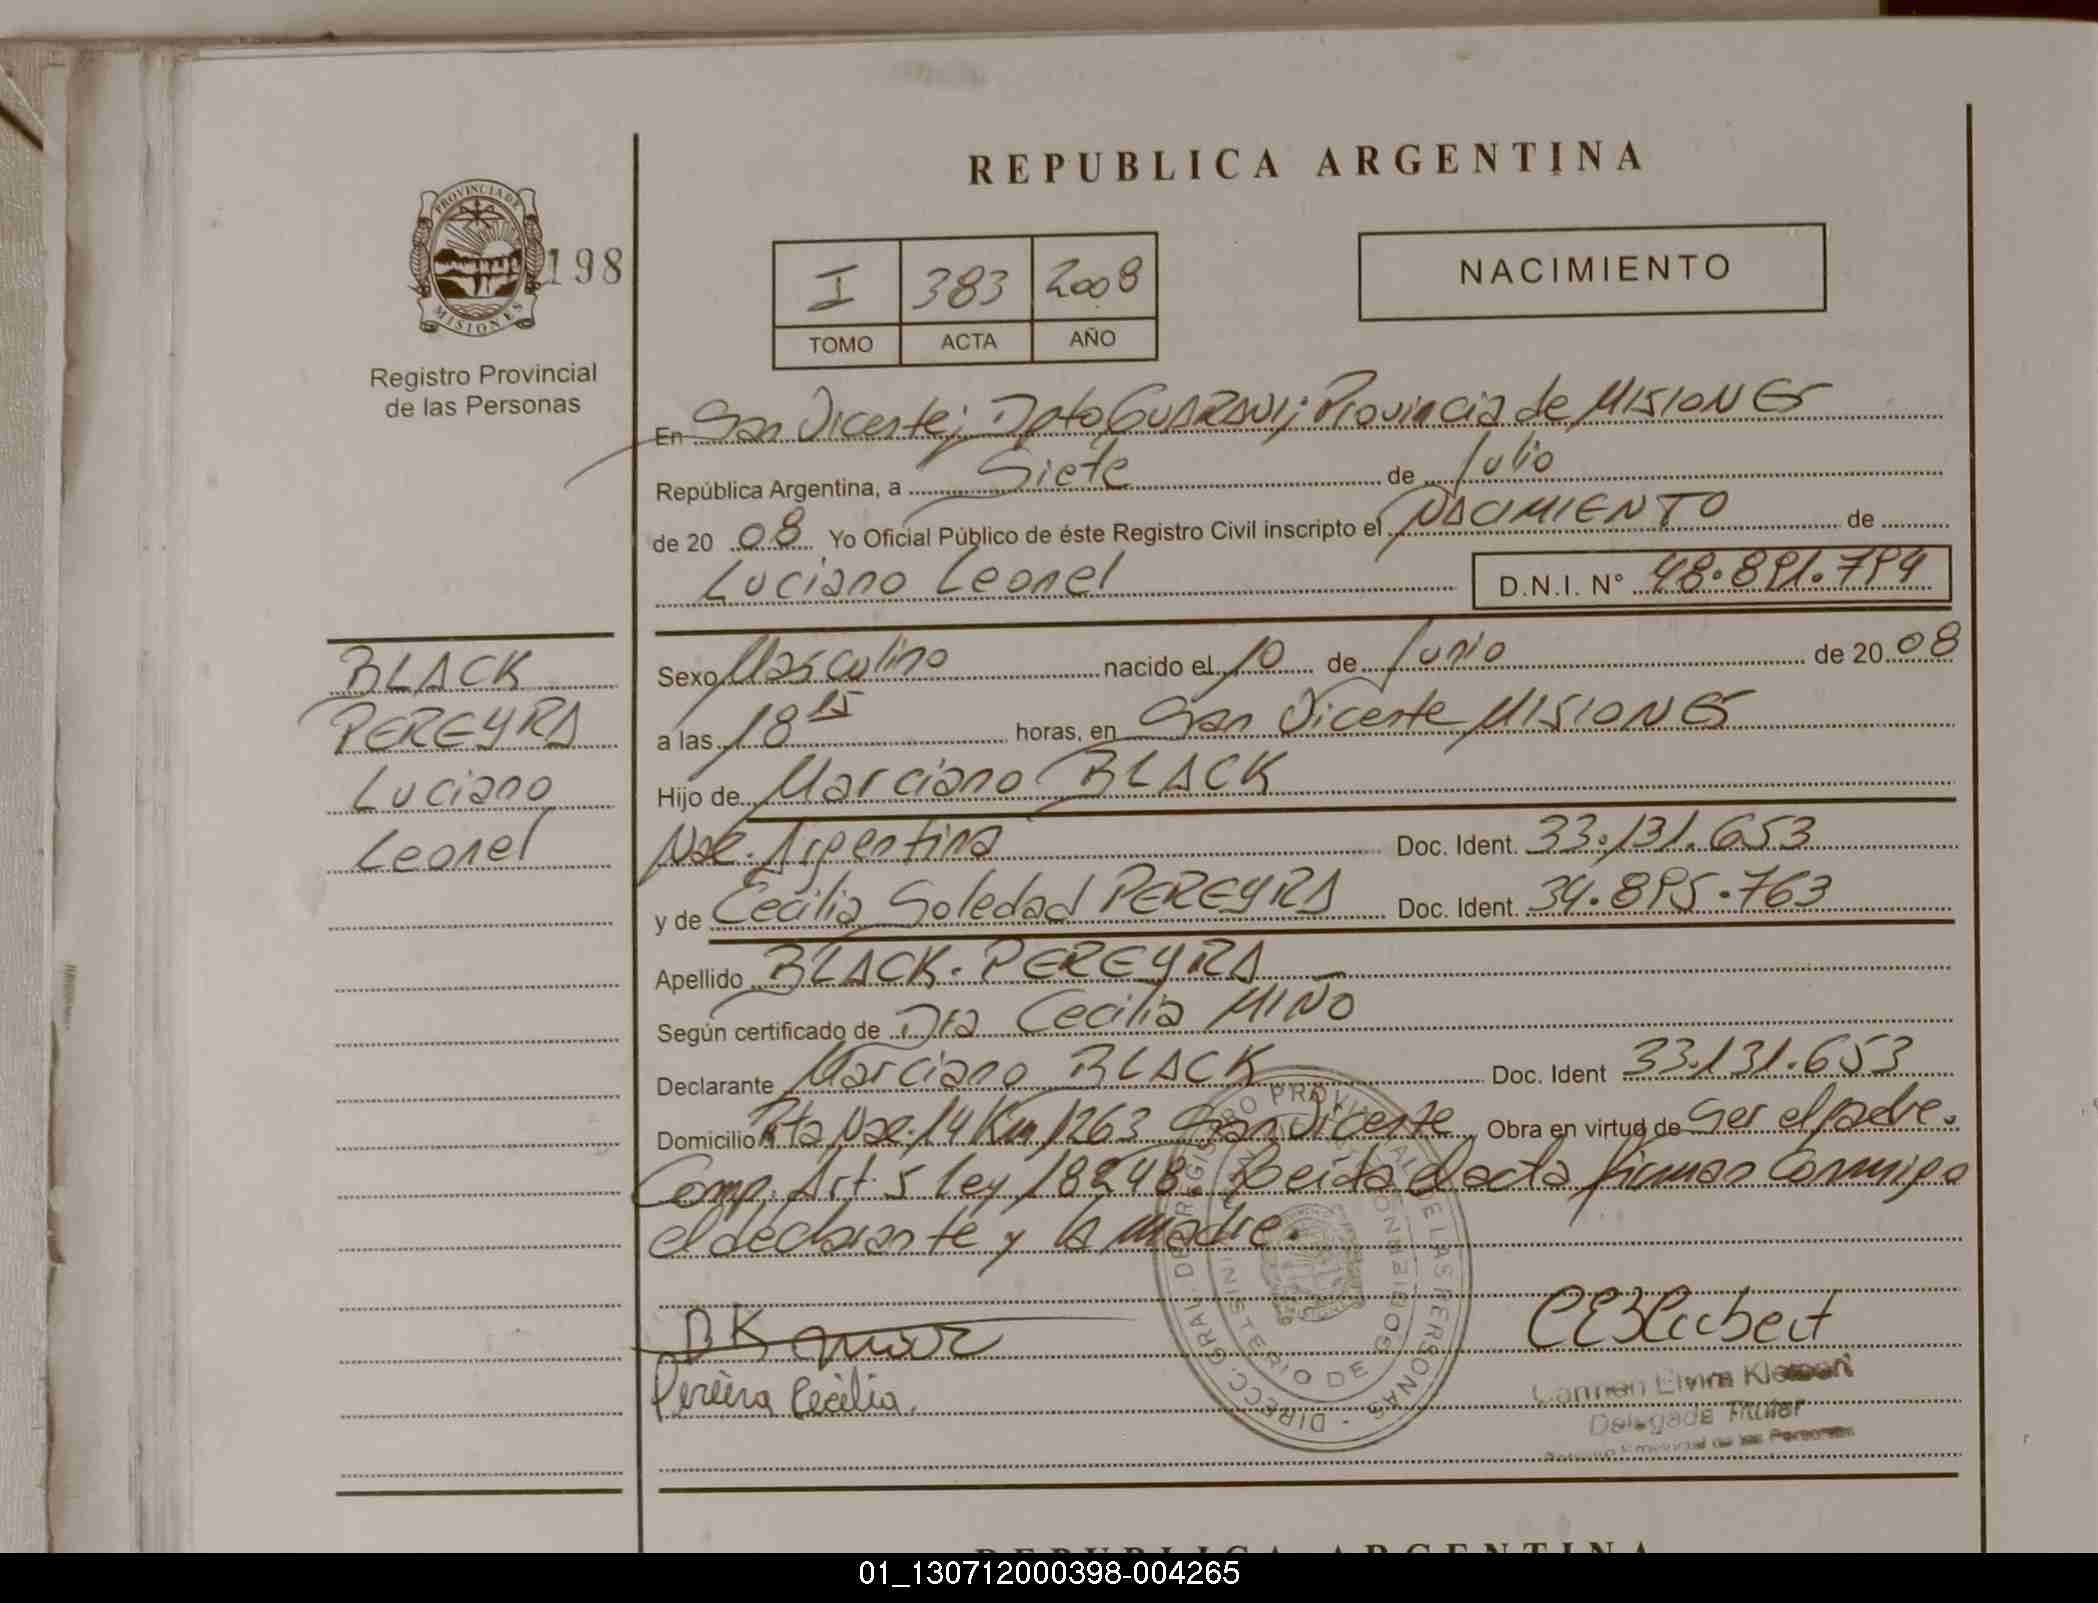 REPUBLICA ARGENTINA
PROVINCIA DE
MISIONES
198
Registro Provincial
de las Personas
I 383 2008
TOMO ACTA AÑO
NACIMIENTO
En San Vicente; Dpto GUARANI; Provincia de MISIONES
República Argentina, a Siete de Julio
de 2008 Yo Oficial Público de éste Registro Civil inscripto el NACIMIENTO de
Luciano Leonel D.N.I. Nº 48.891.794
BLACK
PEREYRA
Luciano
Leonel
Sexo Masculino nacido el 10 de Junio de 2008
a las 18 15 horas, en San Vicente MISIONES
Hijo de Marciano BLACK
Nac. Argentina Doc. Ident. 33.131.653
y de Cecilia Soledad PEREYRA Doc. Ident. 34.895.763
Apellido BLACK. PEREYRA
Según certificado de Dra Cecilia MIÑO
Declarante Marciano BLACK Doc. Ident 33.131.653
Domicilio Rta Nac. 14 Km 1263 San Vicente Obra en virtud de Ser el padre.
Comp. Art. 5 ley 18248. Leida el acta firman Conmigo
el declarante y la madre.
Pereira Cecilia.
Carmen Elvira
Delegada Titular
Provincial de las Personas
DIRECC. GRAL. DE REGISTRO PROVINCIAL DE LAS PERSONAS
MINISTERIO DE GOBIERNO
REPUBLICA ARGENTINA
01_130712000398-004265